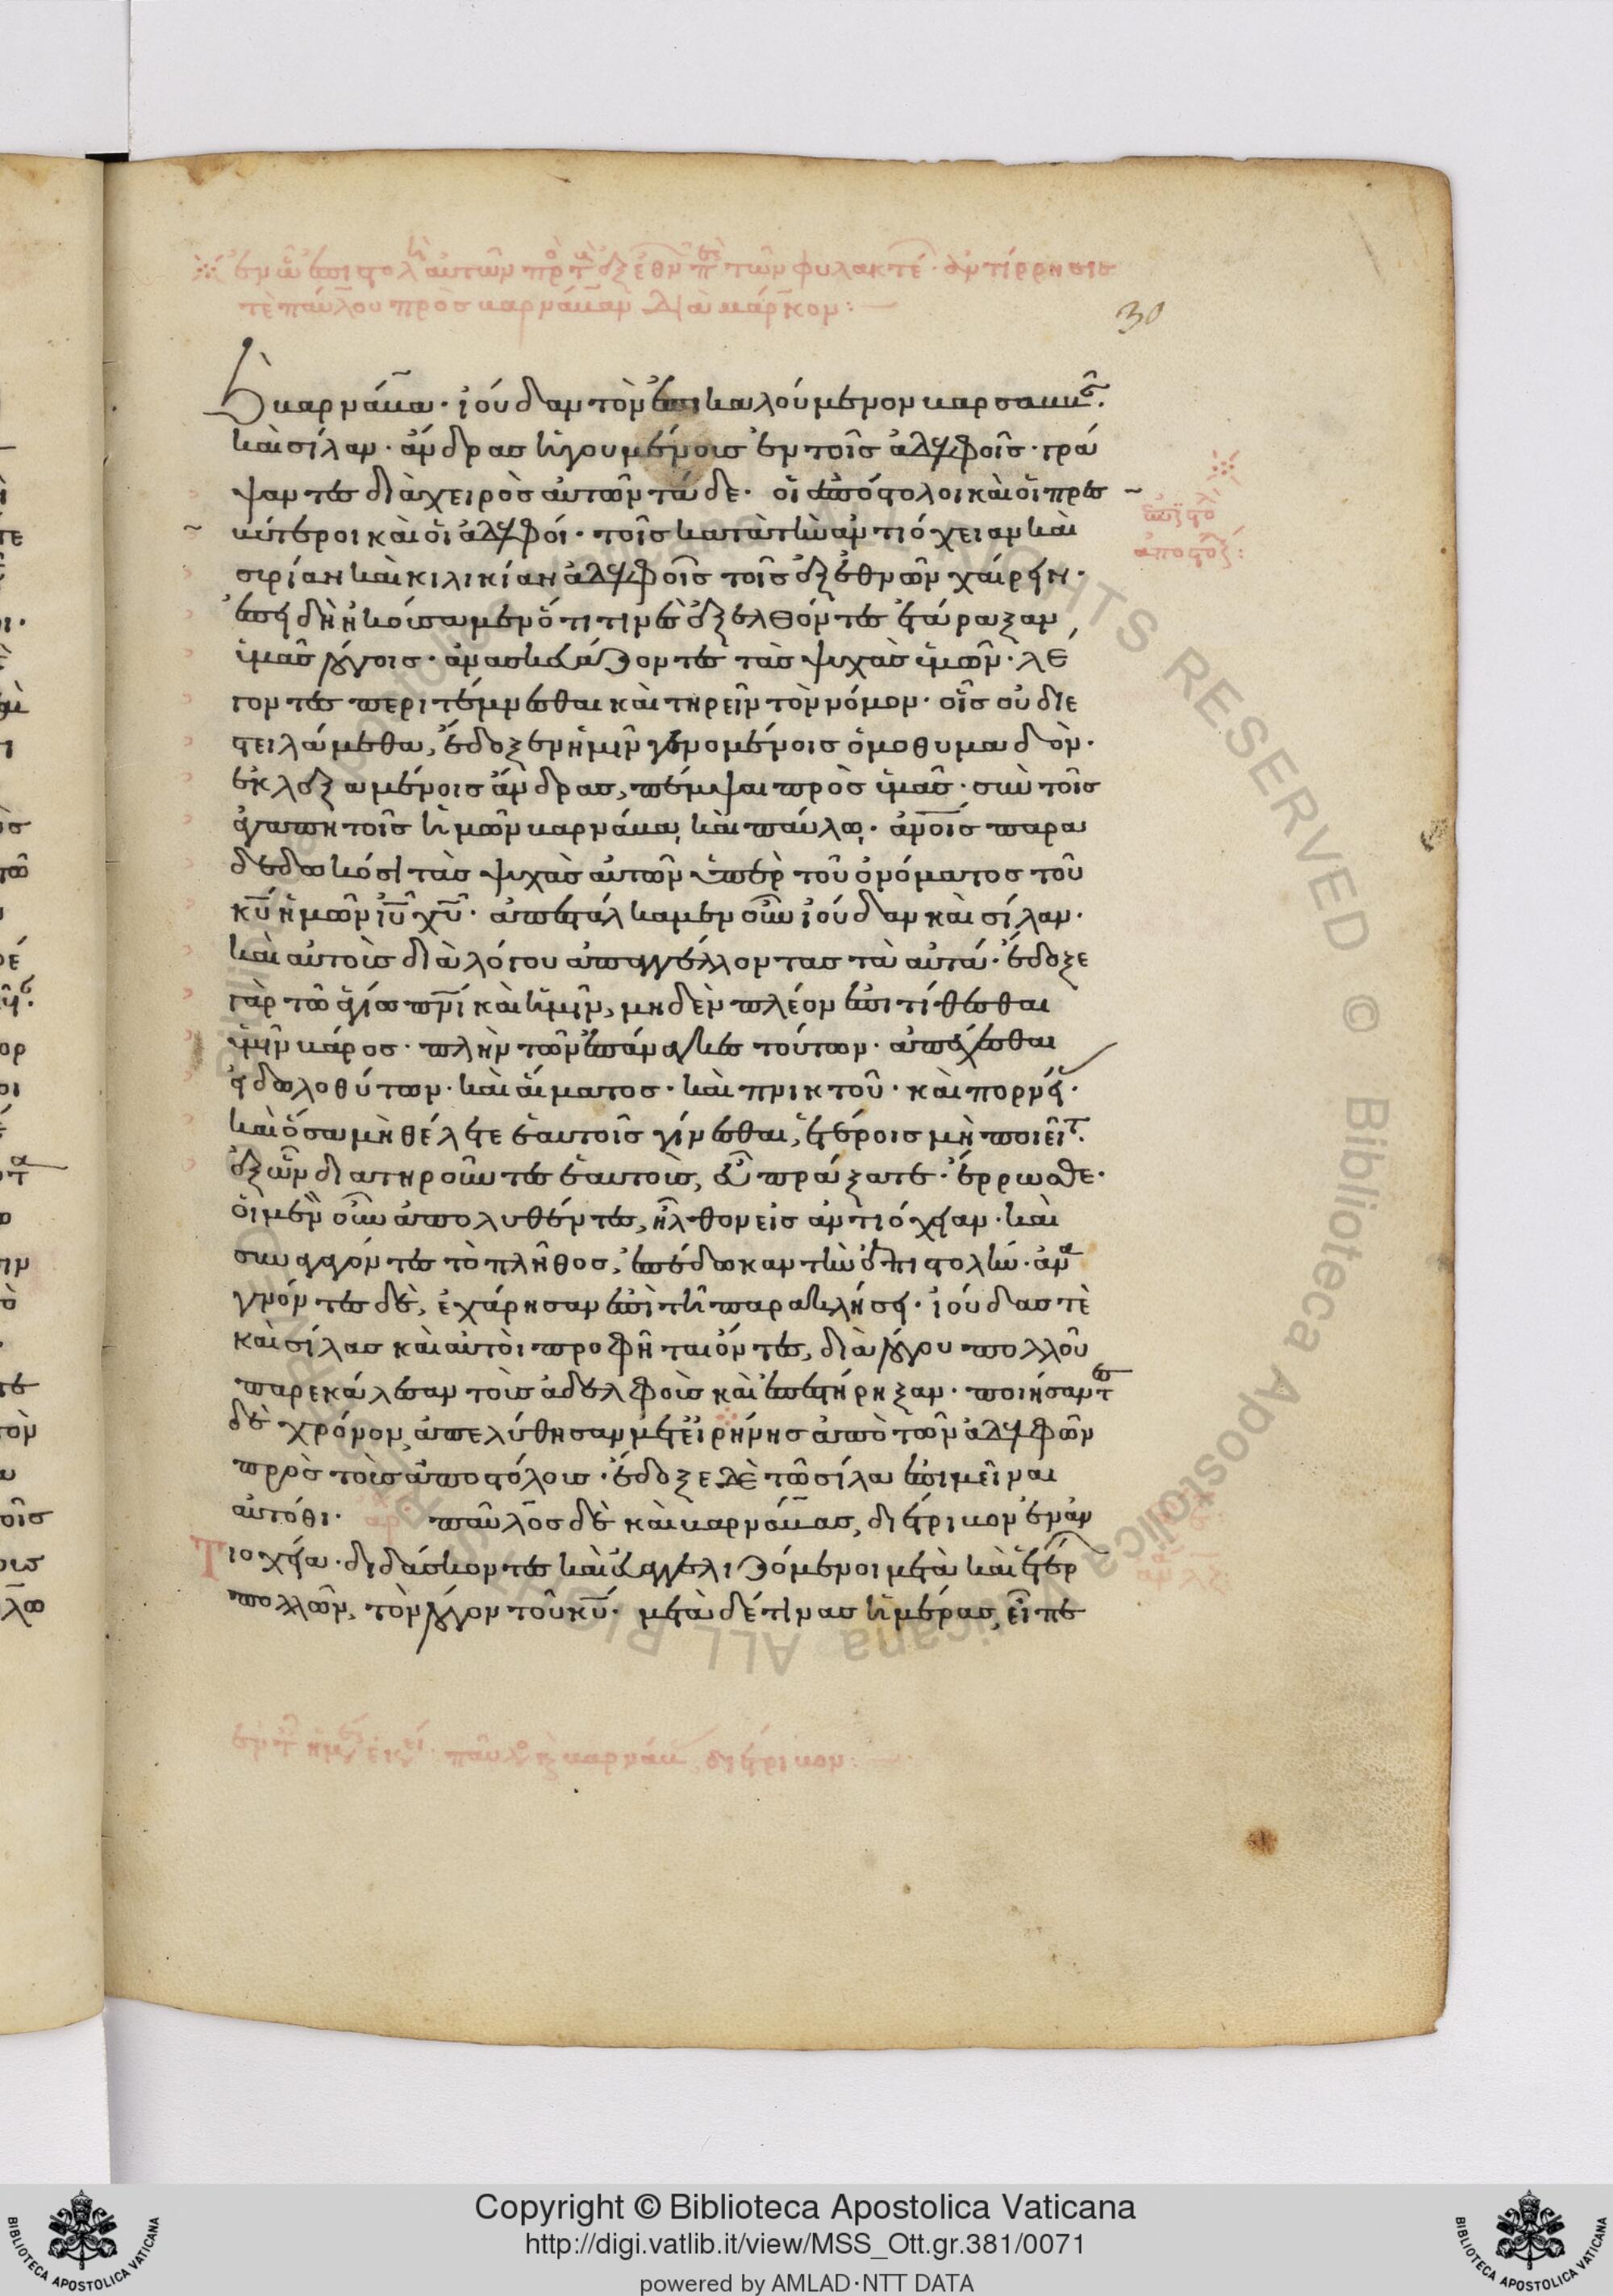 30
καὶ βαρνάβα· ἰούδαν τὸν ἐπικαλούμενον βαρσαββᾶν·
καὶ σίλαν· ἄνδρας ἡγουμένοις ἐν τοῖς ἀδελφοῖς· γρά
ψαντες διὰ χειρὸς αὐτῶν τάδε· οἱ ἀπόστολοι καὶ οἱ πρεσ
βύτεροι καὶ οἱ ἀδελφοί· τοῖς κατὰ τὴν ἀντιόχειαν καὶ
συρίαν καὶ κιλικίαν ἀδελφοῖς τοῖς ἐξ ἐθνῶν χαίρειν·
ἐπειδὴ ἠκούσαμεν ὅτι τινὲς ἐξελθόντες ἐτάραξαν
ὑμᾶς λόγοις· ἀνασκευάζοντες τὰς ψυχὰς ὑμῶν· λέ
γοντες περιτέμνεσθαι καὶ τηρεῖν τὸν νόμον· οἷς οὐ διε
στειλάμεθα, ἔδοξεν ἡμῖν γενομένοις ὁμοθυμαδόν·
ἐκλεξαμένοις ἄνδρας, πέμψαι πρὸς ὑμᾶς· σὺν τοῖς
ἀγαπητοῖς ἡμῶν βαρνάβα, καὶ παύλω· ἀνοῖς παρα
δεδωκόσι τὰς ψυχὰς αὐτῶν ὑπὲρ τοῦ ὀνόματος τοῦ
κῦ ἡμῶν ἰῦ χῦ· ἀπεστάλκαμεν οὖν ἰούδαν καὶ σίλαν·
καὶ αὐτοὺς διὰ λόγου ἀπαγγέλλοντας τὰ αὐτά· ἔδοξε
γὰρ τῶ ἁγίω πνι καὶ ἡμῖν, μηδὲν πλέον ἐπιτίθεσθαι
ὑμῖν βάρος· πλὴν τῶν ἐπάναγκες τούτων· ἀπέχεσθαι
εἰδωλοθύτων· καὶ αἵματος· καὶ πνικτοῦ· καὶ πορνείας·
καὶ ὅσα μὴ θέλετε ἑαυτοῖς γίνεσθαι, ἑτέροις μὴ ποιεῖτε·
ἐξ ὧν διατηροῦντες ἑαυτοὺς, εὖ πράξατε· ἔρρωσθε·
οἱ μὲν οὖν ἀπολυθέντες, ἦλθον εἰς ἀντιόχειαν· καὶ
συναγαγόντες τὸ πλῆθος, ἐπέδωκαν τὴν ἐπιστολήν· ἀνα
γνόντες δὲ, ἐχάρησαν ἐπὶ τῆ παρακλήσει· ἰούδας τὲ
καὶ σίλας καὶ αὐτοὶ προφῆται ὄντες, διὰ λόγου πολλοῦ
παρεκάλεσαν τοὺς ἀδελφοὺς καὶ ἐπεστήριξαν· ποιήσαντες
δὲ χρόνον, ἀπελύθησαν μετ εἰρήνης ἀπὸ τῶν ἀδελφῶν
πρὸς τοὺς ἀποστόλους· ἔδοξε δὲ τῶ σίλα ἐπιμεῖναι
αὐτόθι· παῦλος δὲ καὶ βαρνάβας, διέτριβον ἐν ἀν
τιοχεία· διδάσκοντες καὶ εὐαγγελιζόμενοι μετὰ καὶ ἑτέρων
πολλῶν, τὸν λόγον τοῦ κῦ· μετὰ δέ τινας ἡμέρας, εἶπε
Copyright © Biblioteca Apostolica Vaticana
http://digi.vatlib.it/view/MSS_Ott.gr.381/0071
powered by AMLAD·NTT DATA